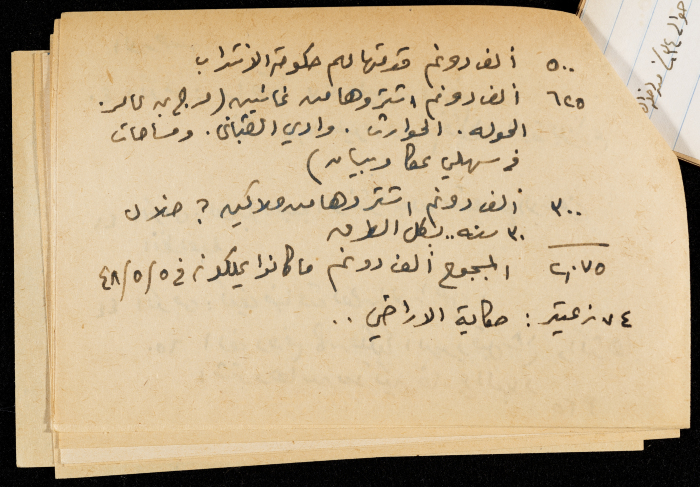 ٥٠٠ ألف دونم قدمتها لهم حكومة الانتداب
٦٢٥ ألف دونم اشتروها من غائبين (مرج بن عامر.
الحوله. الحوارث. وادي القباني. ومساحات
في سهلي عكا وبيسان)
٣٠٠ ألف دونم اشتروها من ملاكين ؟ خلال
٣٠ سنه.. بكل الطرق
٢,٠٧٥ المجموع ألف دونم ما كانوا يملكونه في ٤٨/٥/٥
٧٤ زعيتر : حكاية الاراضي ..
حوالي